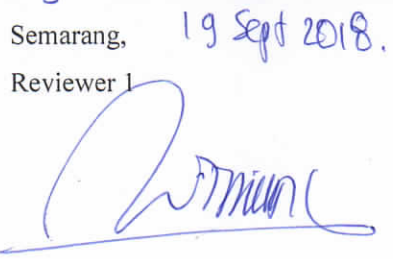 Semarang, 19 Sept 2018.
Reviewer 1